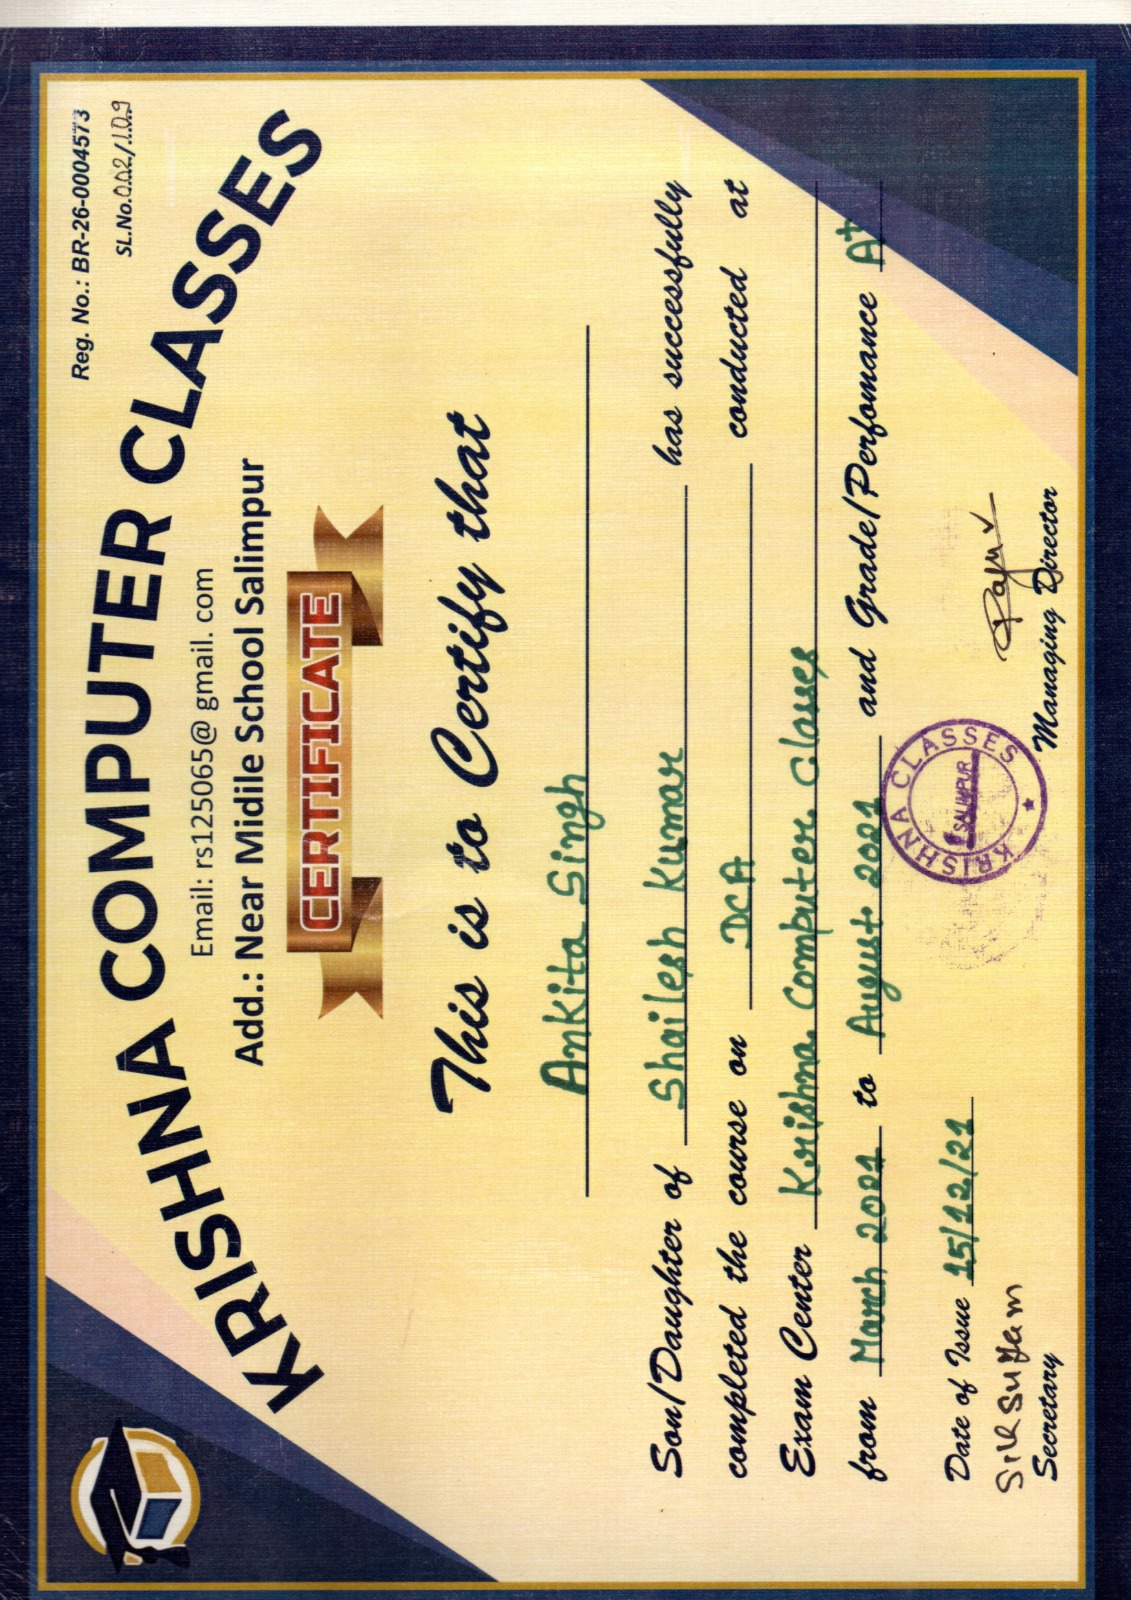 Reg. No.: BR-26-0004573
SL.No.002/109
KRISHNA COMPUTER CLASSES
Email: rs125065@ gmail. com
Add.: Near Midile School Salimpur
CERTIFICATE
This is to Certify that
Ankita Singh
Son/Daughter of Shailesh Kumar has successfully
completed the course on DCA conducted at
Exam Center Krishna Computer Classes
from March 2021 to August 2021 and Grade/Perfomance A+
Date of Issue 15/12/21
KRISHNA CLASSES
SALIMPUR
Secretary
Managing Director